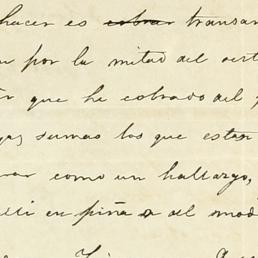 hacer es cobrar transar
por la mitad del
que he cobrado del
sumas los que estan
como un hallazgo,
en piña del mod